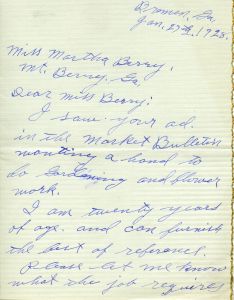 Bremen, Ga.
Jan. 27th, 1925.
Miss Martha Berry,
Mt. Berry, Ga.
Dear Miss Berry:
I saw your ad.
in the Market Bulletin
wanting a hand to
do Gardening and flower
work.
I am twenty years
of age. and can furnish
the best of reference.
Please let me know
what the job requires